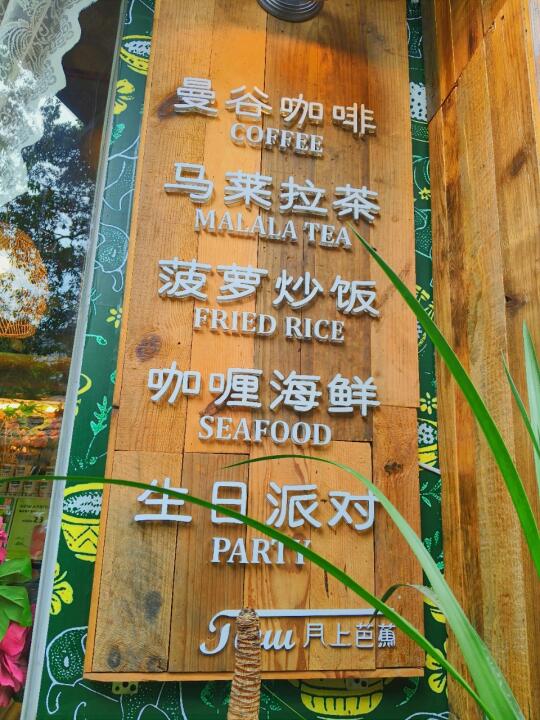 曼谷咖啡
COFFEE
马莱拉茶
MALALA TEA
菠萝炒饭
FRIED RICE
咖喱海鲜
SEAFOOD
生日派对
PARTY
月上芭蕉